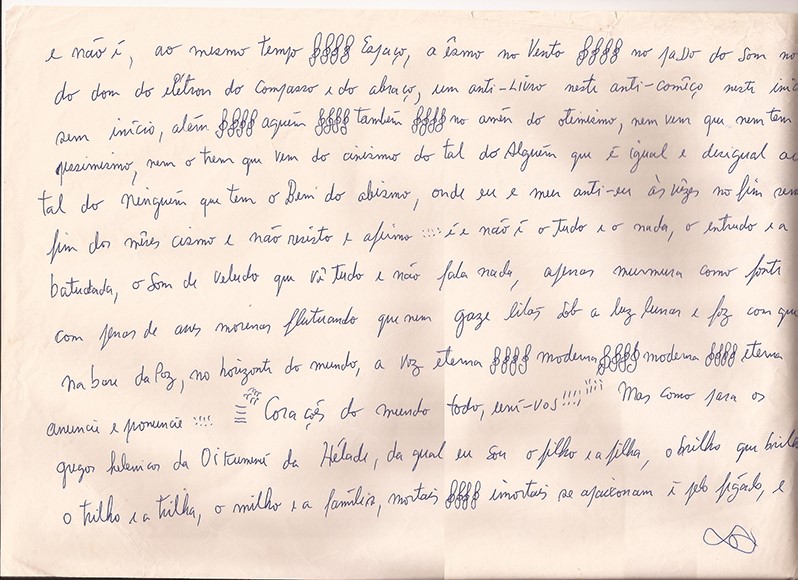 e não é, ao mesmo tempo §§§§ Espaço, a êsmo no Vento §§§§ no pado do som no
do dom do elétron do compasso e do abraço, um anti-Livro neste anti-comêço neste iníc
sem início, além §§§§ aquém §§§§ também §§§§ no amén do otimismo, nem vem que nem tem
pessimismo, nem o trem que vem do cinismo do tal do Alguém que é igual e desigual ao
tal do Ninguém que tem o Bem do abismo, onde eu e meu anti-eu às vêzes no fim sem
fim dos mêses cismo e não resisto e afirmo !!!! é e não é o tudo e o nada, o entrudo e a
batucada, o Som de veludo que vê tudo e não fala nada, apenas murmura como fonte
com penas de aves morenas flutuando que nem gaze lilás sob a luz lunar e faz com que
na base da Paz, no horizonte do mundo, a voz eterna §§§§ moderna §§§§ moderna §§§§ eterna
anuncie e pronuncie !!!! Corações do mundo todo, uni-vos!!!! !!!! Mas como para os
gregos helenicos da Oikumenê da Hélade, da qual eu sou o filho e a filha, o brilho que brilha
o trilho e a trilha, o milho e a família, mortais §§§§ imortais se apaixonam é pelo fígado, e